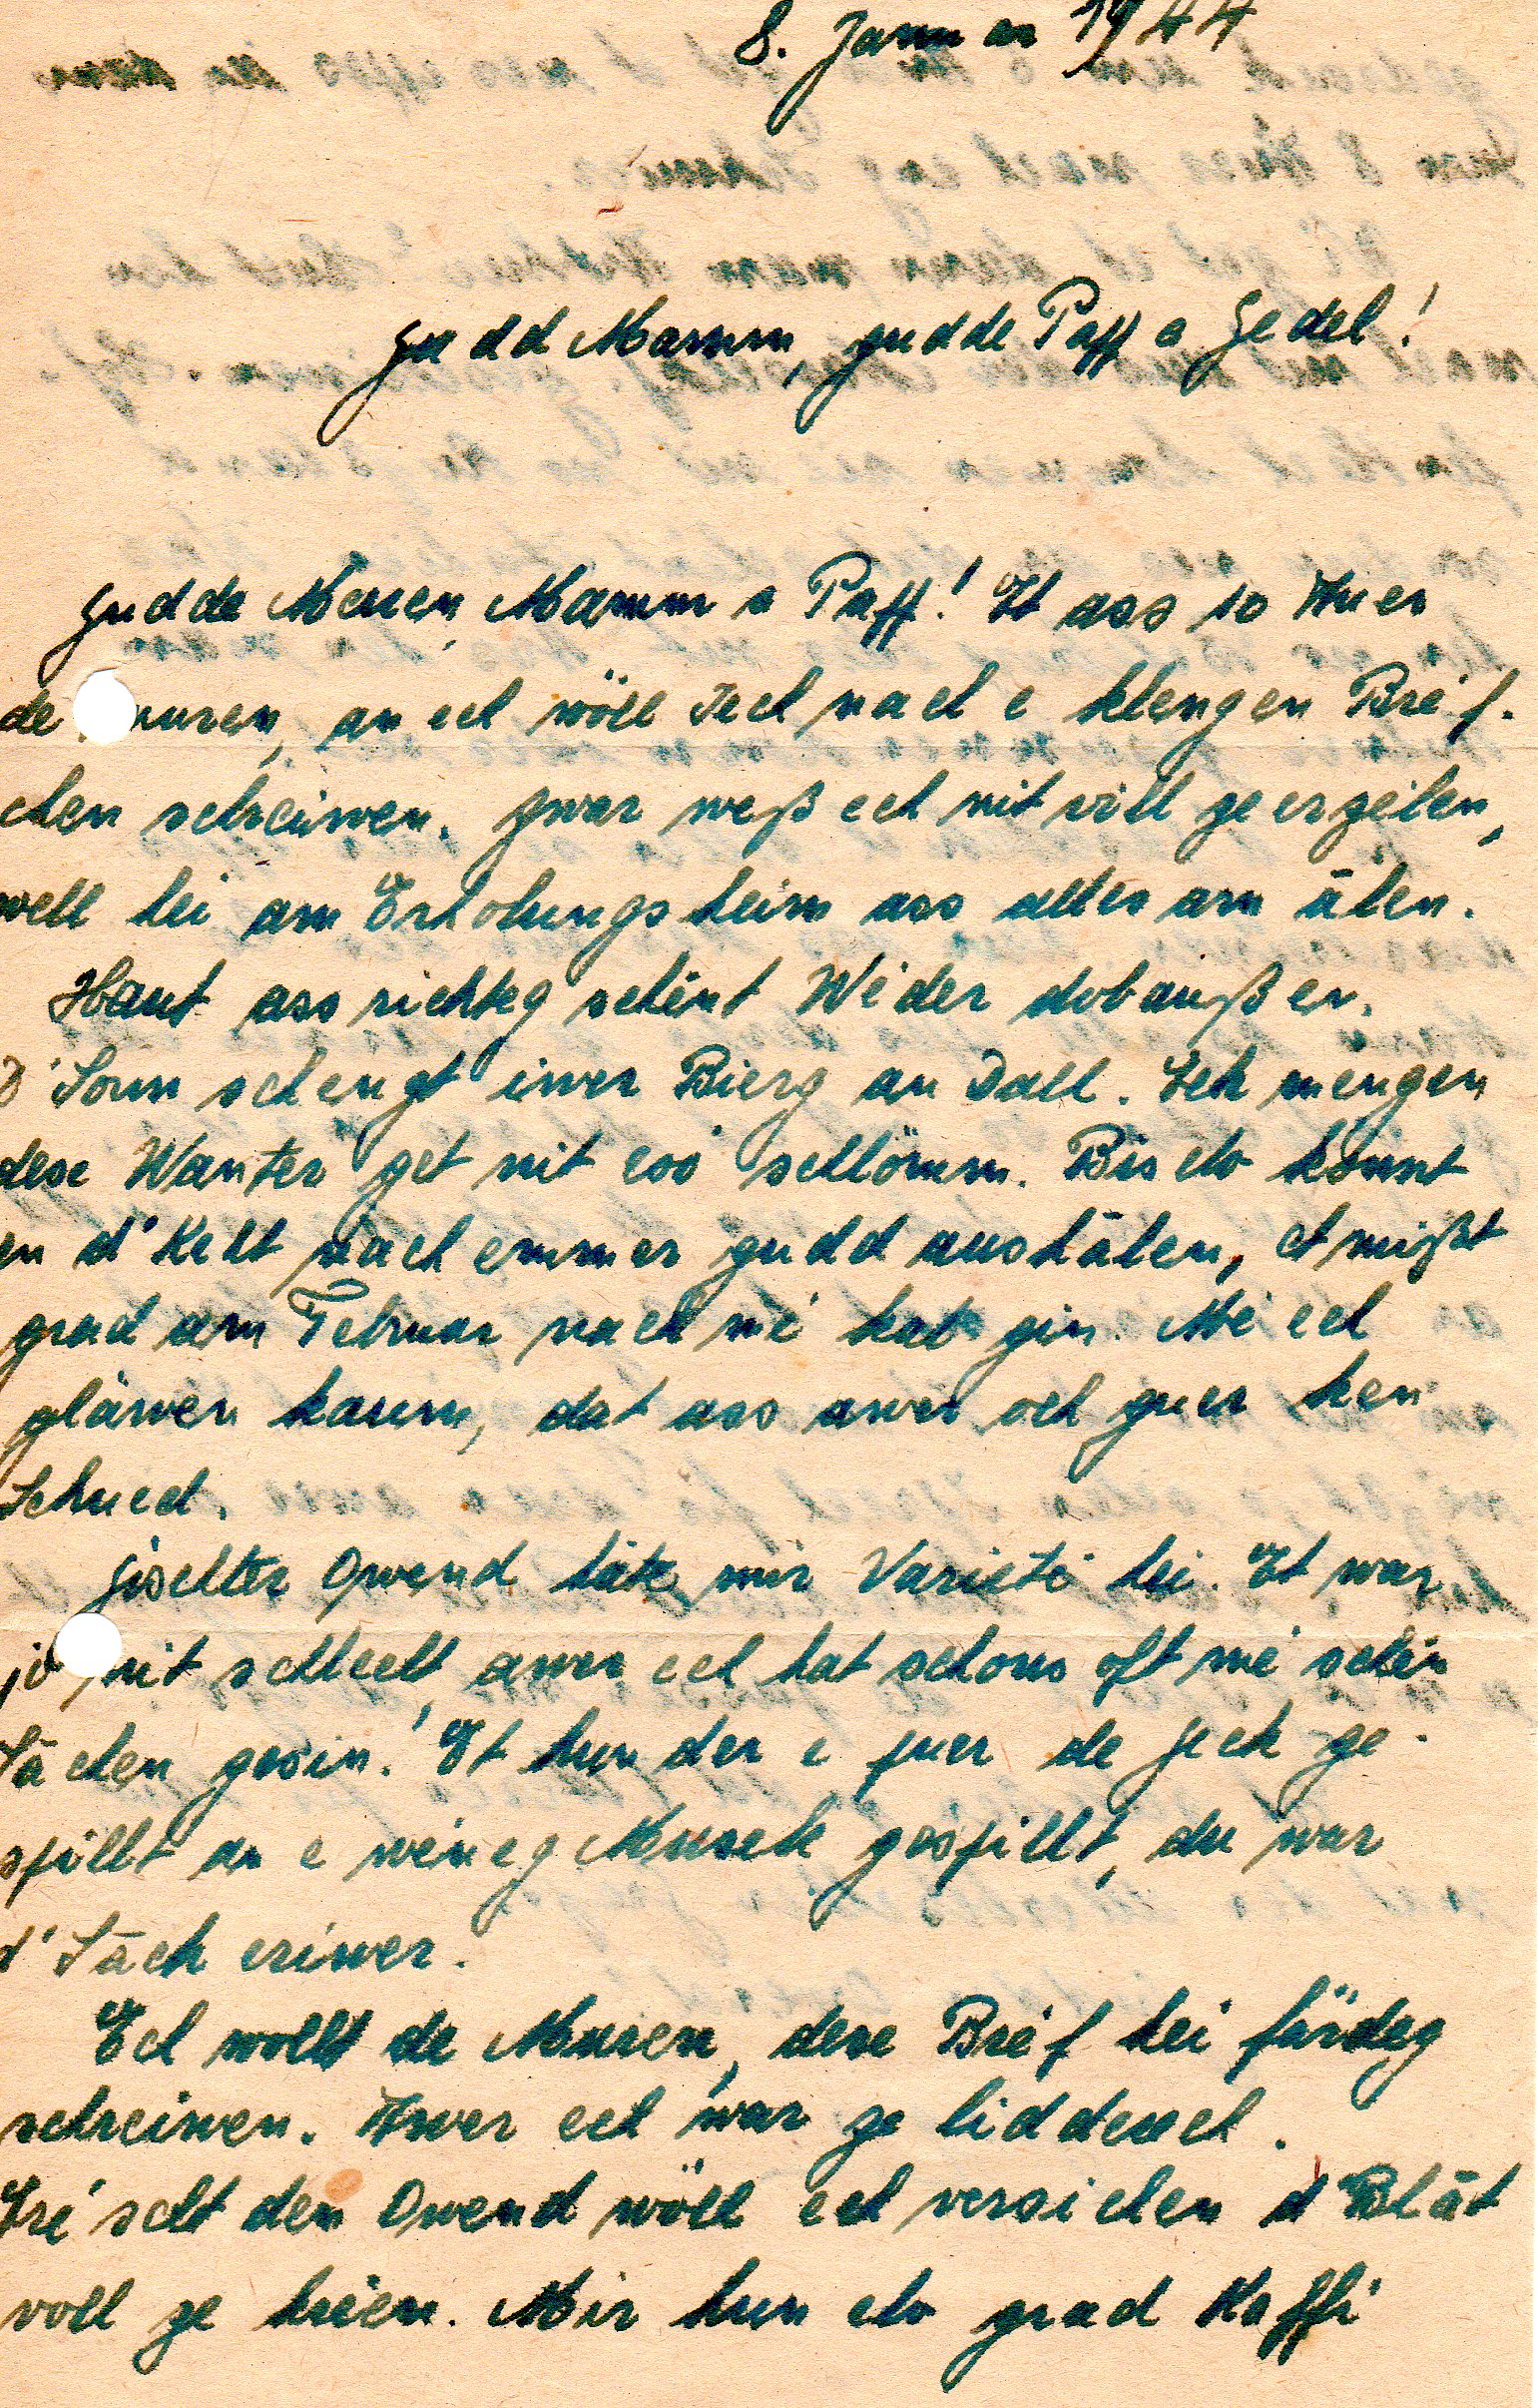 8. Januar 1944
Gudd Mamm, gudde Papp a Jedel!
Gudde Muien, Mamm a Papp! Et ass 10 Auer
de uuren, an ech wöll Iech nach e klengen Bréf-
chen schreiwen. Zwar weß ech nit vill ze erzeilen,
well hei am Erholungsheim ass alles am älen.
Haut ass richteg schént Wéder dobaußen.
D'Sonn schengt iwer Bierg an Dall. Ech mengen
dese Wanter get nit esó schlömm. Bis elo könnt
en d'Kelt nach emmer gudd aushälen, et mißt
grad am Februar nach mé kal gin. Mé ech
gläwen kaum, dat ass awer och guer ken
Schued.
Gischter Owend häte mir Varieté hei. Et war
jo nit schlecht, awer ech hat schons oft mé schén
Sächen gesin. Et hun der e puer de Jeck ge-
spillt an e wéineg Musek gespillt, du war
d'Säch eriwer.
Ech wollt de Muren, dese Bréf hei färdeg
schreiwen. Awer ech war ze lidderech.
Eréscht den Owend wöll ech versichen d'Blät
voll ze kréien. Mir hun elo grad Kaffi